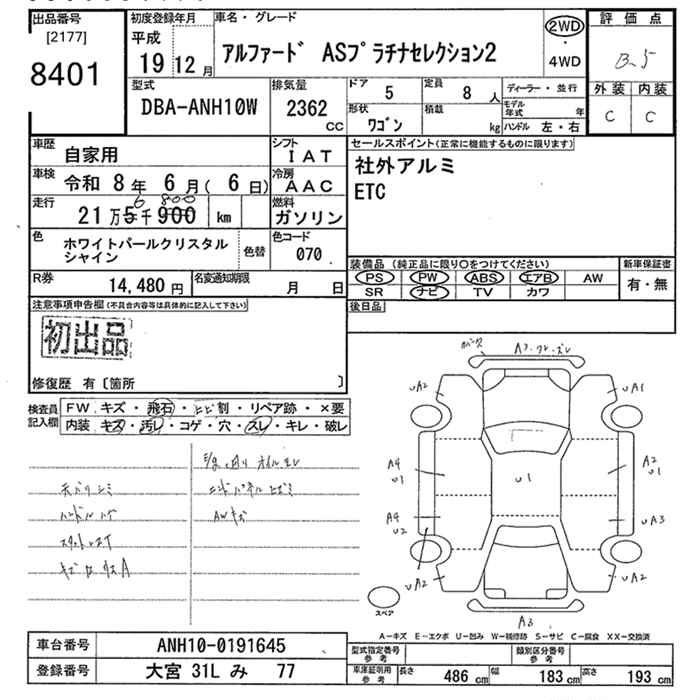 出品番号
[2177]
8401
初度登録年月
平成
19 12 月
車名・グレード
アルファード ASプラチナセレクション2
2WD
・
4WD
評価点
外装 内装
C C
型式
DBA-ANH10W
排気量
2362
CC
ドア
5
定員
8 人
形状
ワゴン
積載
kg
ディーラー・並行
モデル年式 年
ハンドル 左・右
車歴
自家用
シフト
IAT
車検
令和 8 年 6 月( 6 日)
冷房
AAC
走行
6 800
21 万 5 千 900 km
燃料
ガソリン
色
ホワイトパールクリスタル
シャイン
色替
色コード
070
R券
14,480 円
名変通知期限
月 日
セールスポイント(正常に機能するものに限ります)
社外アルミ
ETC
装備品 (純正品に限り○をつけてください)
PS PW ABS エアB AW
SR ナビ TV カワ
新車保証書
有・無
後日品
注意事項申告欄(不具合内容等は具体的に記入して下さい)
初出品
修復歴 有〔箇所 〕
検査員
記入欄
FW キズ・飛石・ヒビ割・リペア跡・×要
内装 キズ・汚レ・コゲ・穴・スレ・キレ・破レ
AWキズ
A3
uA2
uA1
A4
u1
u1
A2
u1
A4
u2
uA3
uA2
uA2
A3
スペア
A-キズ E-エクボ U-凹み W-補修跡 S-サビ C-腐食 XX-交換済
車台番号
ANH10-0191645
登録番号
大宮 31L み 77
型式指定番号
参考
類別区分番号
参考
車庫証明用
参考
長さ 486 cm
幅 183 cm
高さ 193 cm